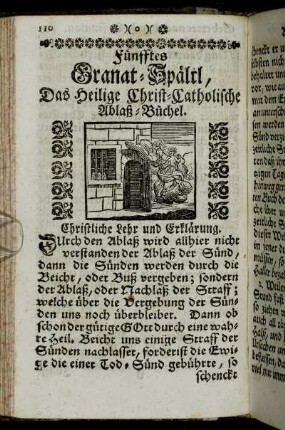 110
(o)
Fünfftes
Granat-Spältl,
Das Heilige Christ-Catholische
Ablaß-Büchel.
Christliche Lehr und Erklärung.
Durch den Ablaß wird allhier nicht
verstanden der Ablaß der Sünd,
dann die Sünden werden durch die
Beicht, oder Buß vergeben; sondern
der Ablaß, oder Nachlaß der Straff;
welche über die Vergebung der Sün-
den uns noch überbleibet. Dann ob
schon der gütige GOtt durch eine wah-
re Heil. Beicht uns einige Straff der
Sünden nachlasset, forderist die Ewi-
ge die einer Tod-Sünd gebührte, so
schenckt